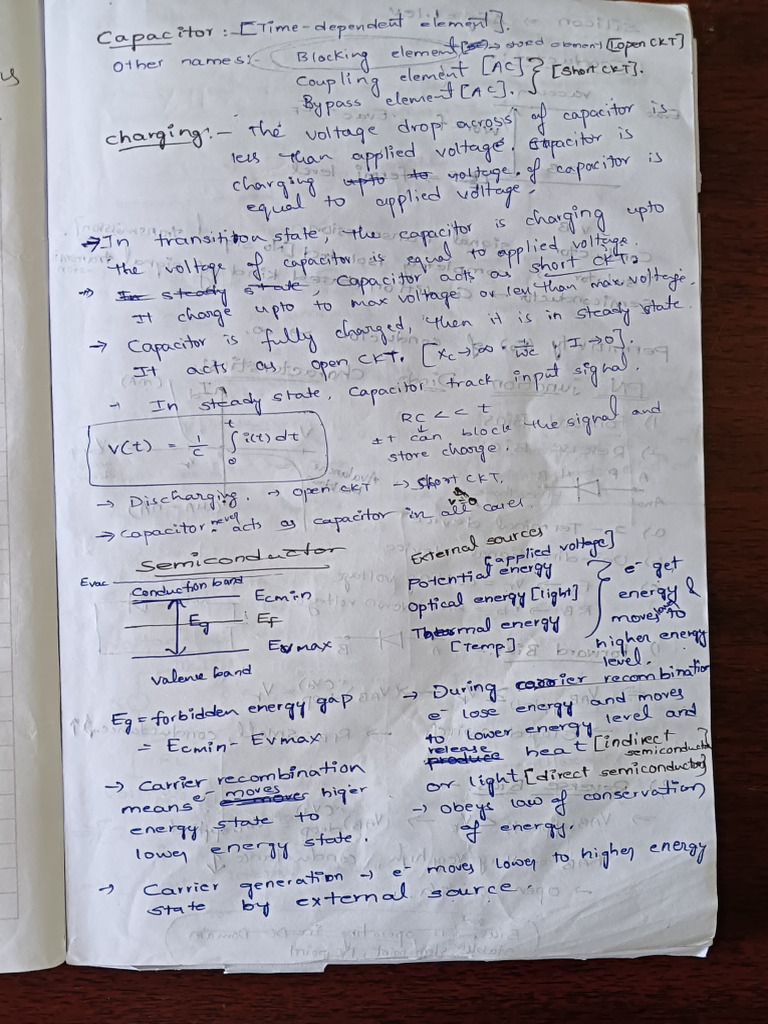 Capacitor :- [Time-dependent element].
Other names:- Blocking element [DC] → stored element [open CKT]
Coupling element [AC] } [short CKT].
Bypass element [AC].
charging :- The voltage drop across of capacitor is
less than applied voltage. Capacitor is
charging upto to voltage of capacitor is
equal to applied voltage.
→ In transition state, the capacitor is charging upto
the voltage of capacitor is equal to applied voltage.
→ In steady state, Capacitor acts as short CKT.
It charge upto to max voltage or less than max voltage.
→ Capacitor is fully charged, then it is in steady state.
It acts as open CKT. [Xc → ∞ = 1/ωc, I → 0].
→ In steady state, Capacitor track input signal.
V(t) = 1/C ∫₀ᵗ i(t) dt
RC < < t
It can block the signal and
store charge.
→ Discharging. → open CKT → Short CKT.
v=0
→ Capacitor never acts as capacitor in all cases.
Semiconductor
Evac
Conduction band
Ecmin
Eg
Ef
Evmax
valence band
Eg = forbidden energy gap
= Ecmin - Evmax
→ Carrier recombination
means e⁻ moves higer
energy state to
lower energy state.
External sources
[applied voltage]
Potential energy
Optical energy [light]
Thermal energy
[Temp]
e⁻ get
energy &
moves to
higher energy
level.
→ During carrier recombination
e⁻ lose energy and moves
to lower energy level and
release
produce heat [indirect
semiconductor]
or light [direct semiconductor]
→ Obeys law of conservation
of energy.
→ Carrier generation → e⁻ moves lower to higher energy
state by external source.